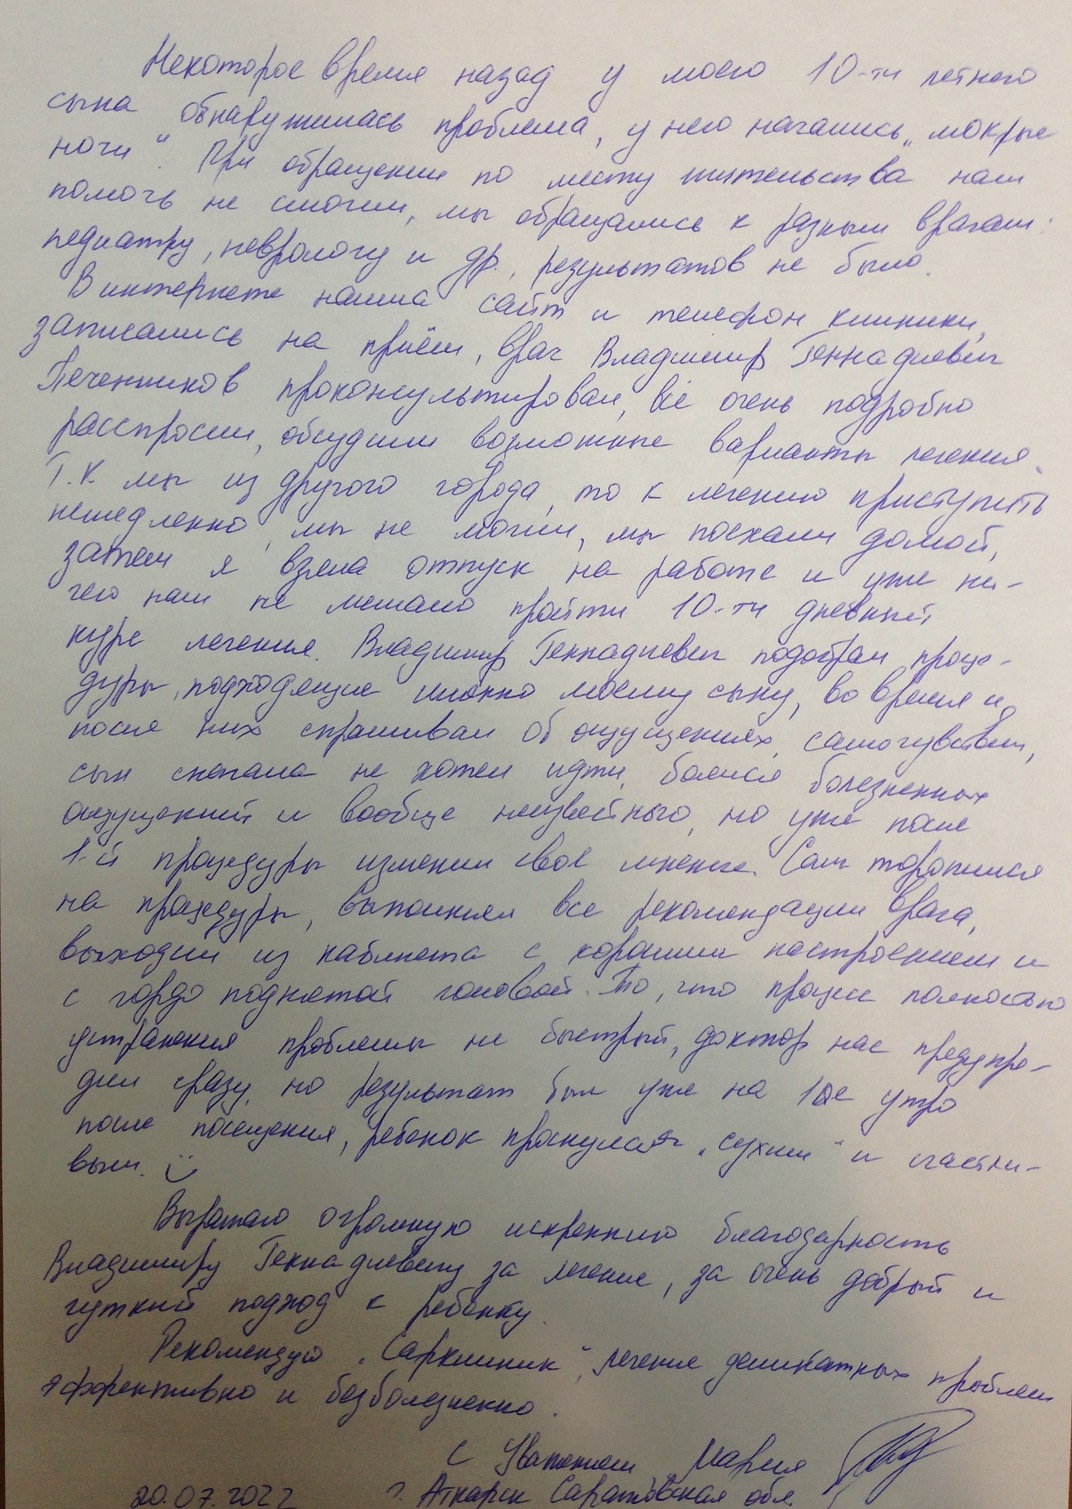 Некоторое время назад у моего 10-ти летнего
сына обнаружилась проблема, у него начались „мокрые
ночи". При обращении по месту жительства нам
помочь не смогли, мы обращались к разным врачам:
педиатру, неврологу и др., результатов не было.
В интернете нашла сайт и телефон клиники,
записались на приём, врач Владимир Геннадиевич
Печенников проконсультировал, всё очень подробно
расспросил, обсудили возможные варианты лечения.
Т.к. мы из другого города, то к лечению приступить
немедленно, мы не могли, мы поехали домой,
затем я взяла отпуск на работе и уже ни-
чего нам не мешало пройти 10-ти дневный
курс лечения. Владимир Геннадиевич подобрал проце-
дуры, подходящие именно моему сыну, во время и
после них спрашивал об ощущениях, самочувствии,
сын сначала не хотел идти, боялся болезненных
ощущений и вообще неизвестного, но уже после
1-й процедуры изменил своё мнение. Сам торопился
на процедуры, выполнял все рекомендации врача,
выходил из кабинета с хорошим настроением и
с гордо поднятой головой. То, что процесс полностью
устранения проблемы не быстрый, доктор нас предупре-
дил сразу, но результат был уже на 1ое утро
после посещения, ребенок проснулся „сухим" и счастли-
вым.
Выражаю огромную искреннюю благодарность
Владимиру Геннадиевичу за лечение, за очень добрый и
чуткий подход к ребенку.
Рекомендую „Сарклиник", лечение деликатных проблем
эффективно и безболезненно.
С Уважением Мария
20.07.2022 г. Аткарск Саратовская обл.